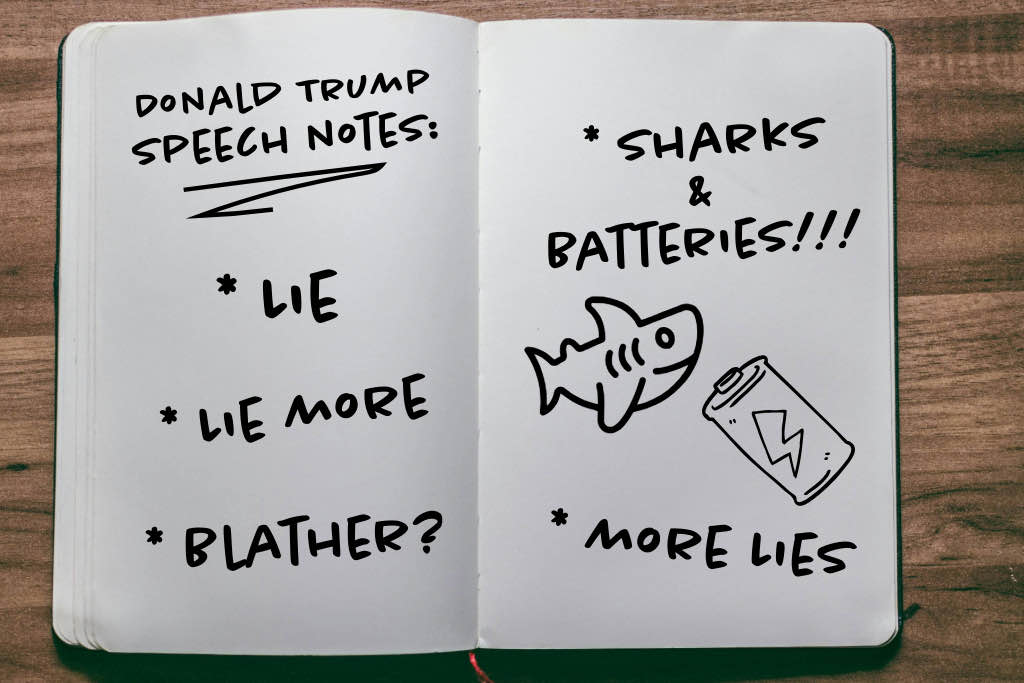 DONALD TRUMP
SPEECH NOTES:
* LIE
* LIE MORE
* BLATHER?
* SHARKS
&
BATTERIES!!!
* MORE LIES